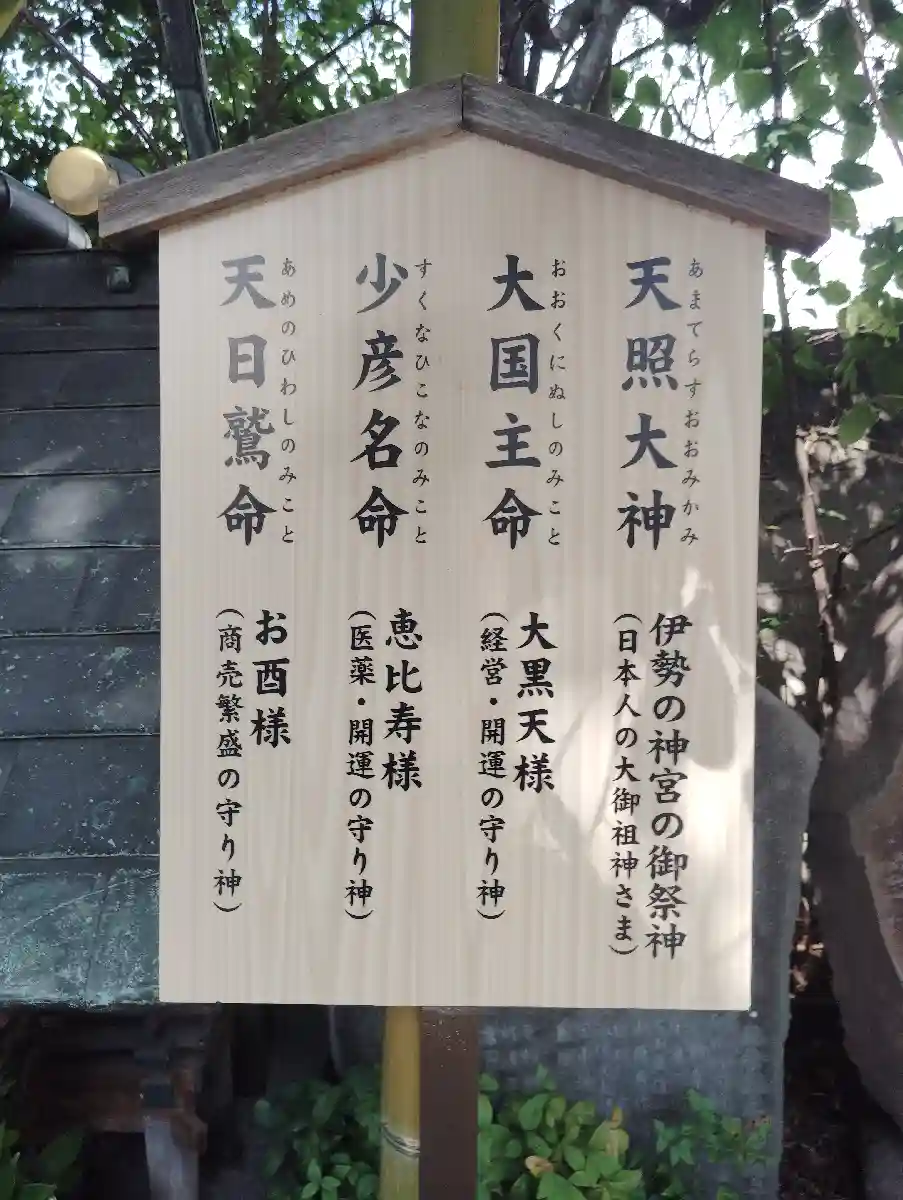 天照大神
あまてらすおおみかみ
伊勢の神宮の御祭神
（日本人の大御祖神さま）
大国主命
おおくにぬしのみこと
大黒天様
（経営・開運の守り神）
少彦名命
すくなひこなのみこと
恵比寿様
（医薬・開運の守り神）
天日鷲命
あめのひわしのみこと
お酉様
（商売繁盛の守り神）